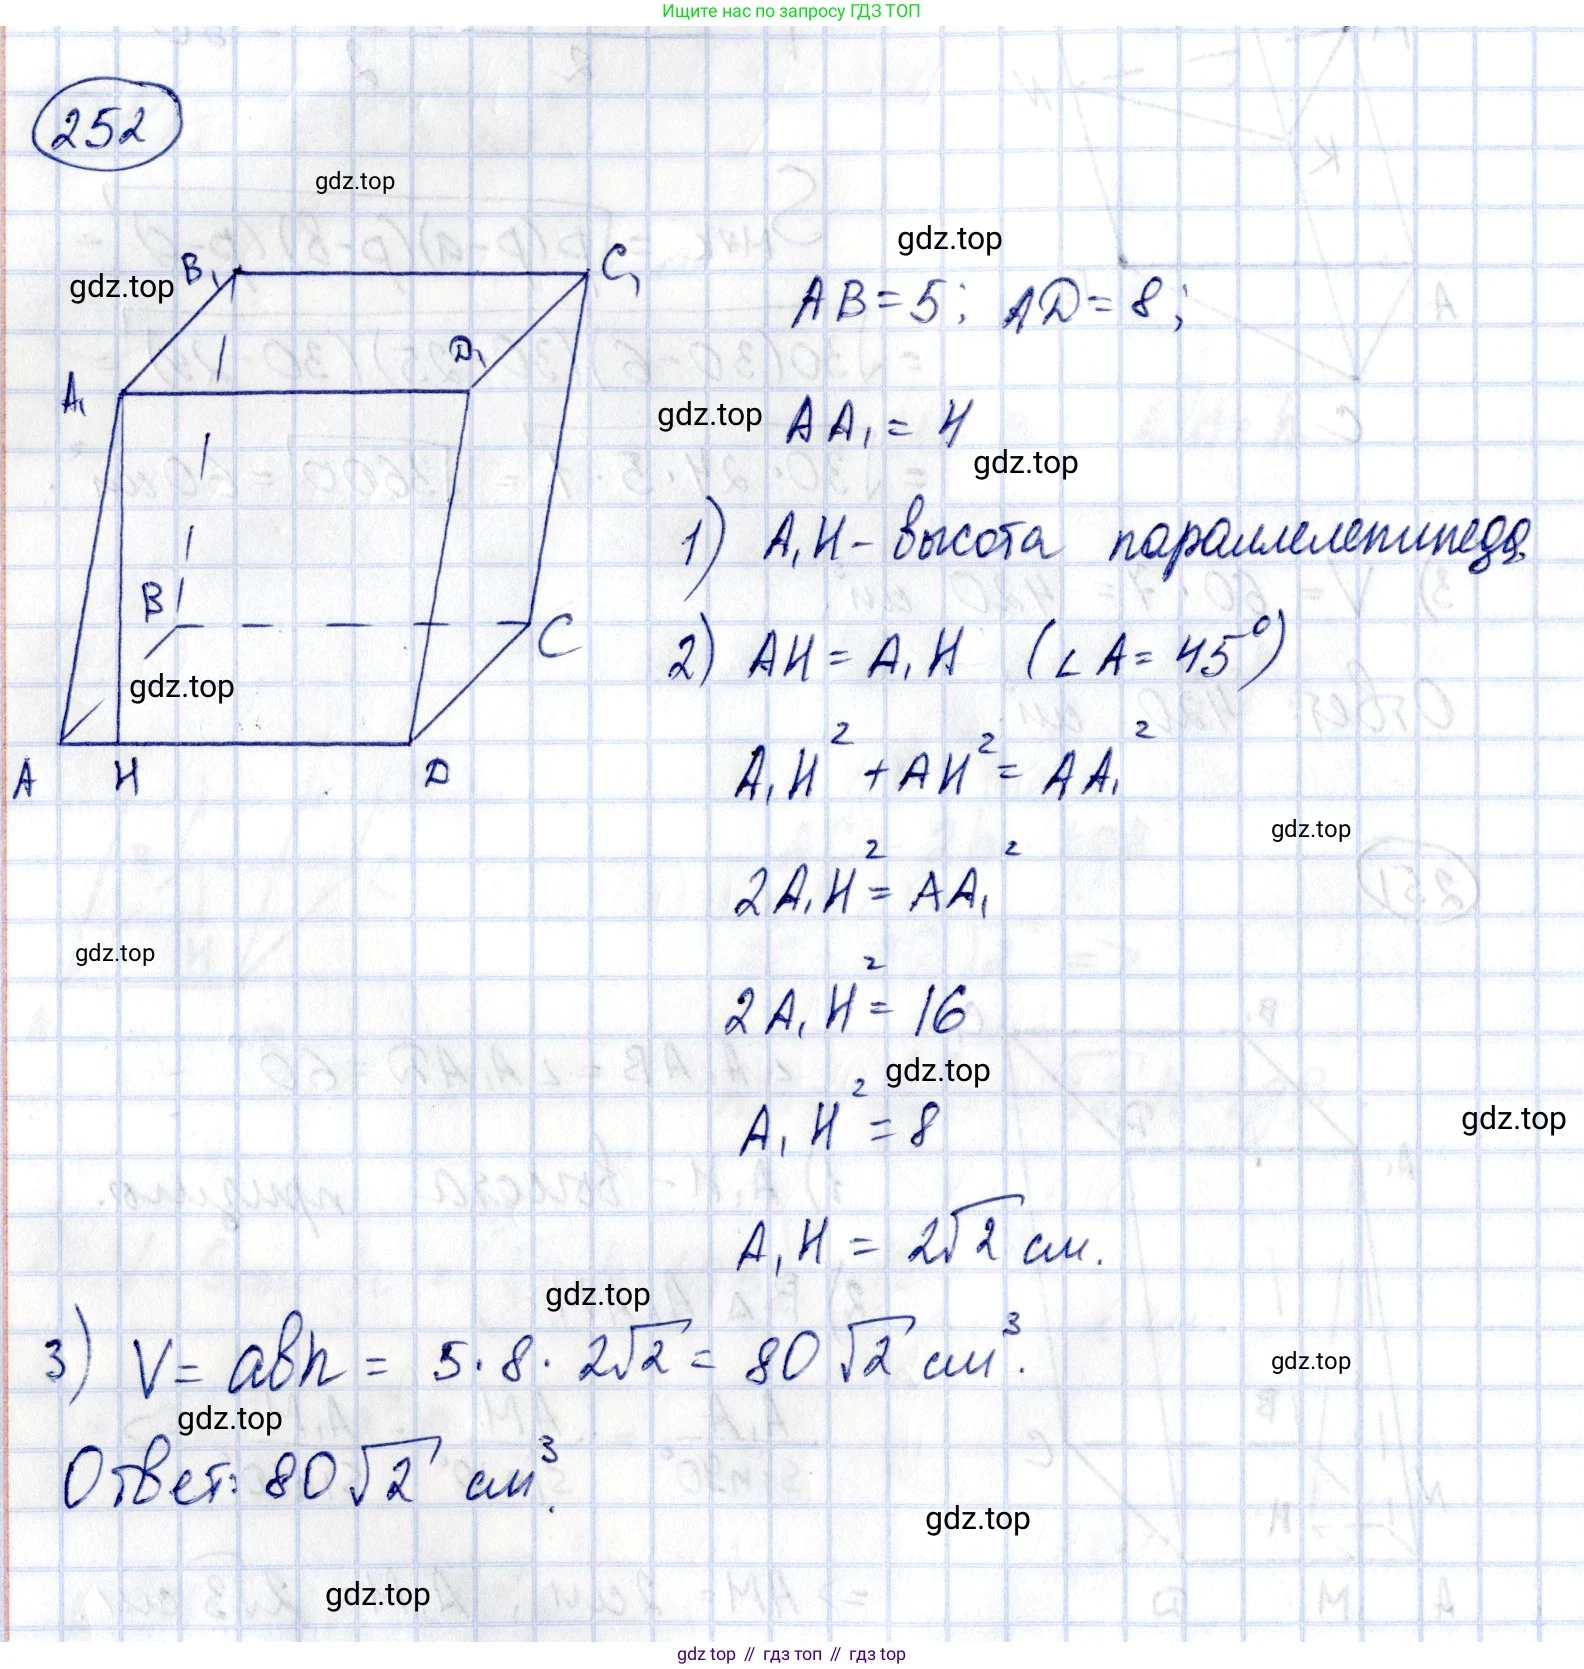 Ищите нас по запросу ГДЗ ТОП
252
gdz.top
gdz.top
gdz.top
B₁
C₁
AB = 5; AD = 8;
D₁
A₁
gdz.top
AA₁ = 4
gdz.top
1) A₁H - высота параллелепипеда.
B
C
2) AH = A₁H (∠A = 45°)
gdz.top
A
H
D
A₁H² + AH² = AA₁²
gdz.top
2A₁H² = AA₁²
gdz.top
2A₁H² = 16
gdz.top
A₁H² = 8
gdz.top
A₁H = 2√2 см.
gdz.top
3) V = abh = 5 · 8 · 2√2 = 80√2 см³.
gdz.top
gdz.top
Ответ: 80√2 см³.
gdz.top
gdz.top
gdz top // гдз топ // гдз top